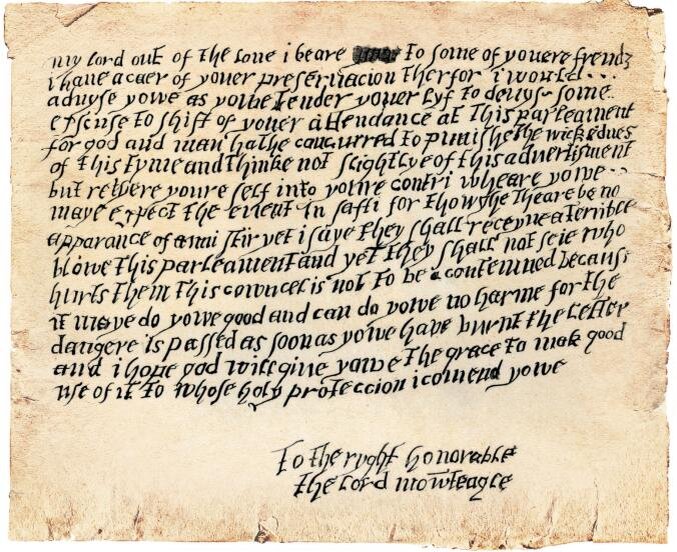 my lord out of the loue i beare to some of youere frendz
i haue a caer of youer preseruacion therfor i would
aduyse yowe as yowe tender youer lyf to deuys some
excuse to shift of youer attendance at this parleament
for god and man hathe concurred to punishe the wickednes
of this tyme and thinke not slightlye of this aduertisment
but retyere youre self into youre contri wheare yowe
maye expect the euent in safti for thowghe theare be no
apparance of anni stir yet i saye they shall receyue a terrible
blowe this parleament and yet they shall not seie who
hurts them this cowncel is not to be contemned because
it maye do yowe good and can do yowe no harme for the
dangere is passed as soon as yowe have burnt the letter
and i hope god will giue yowe the grace to mak good
use of it to whose holy proteccion i comend yowe
To the ryght honorable
the lord mowteagle